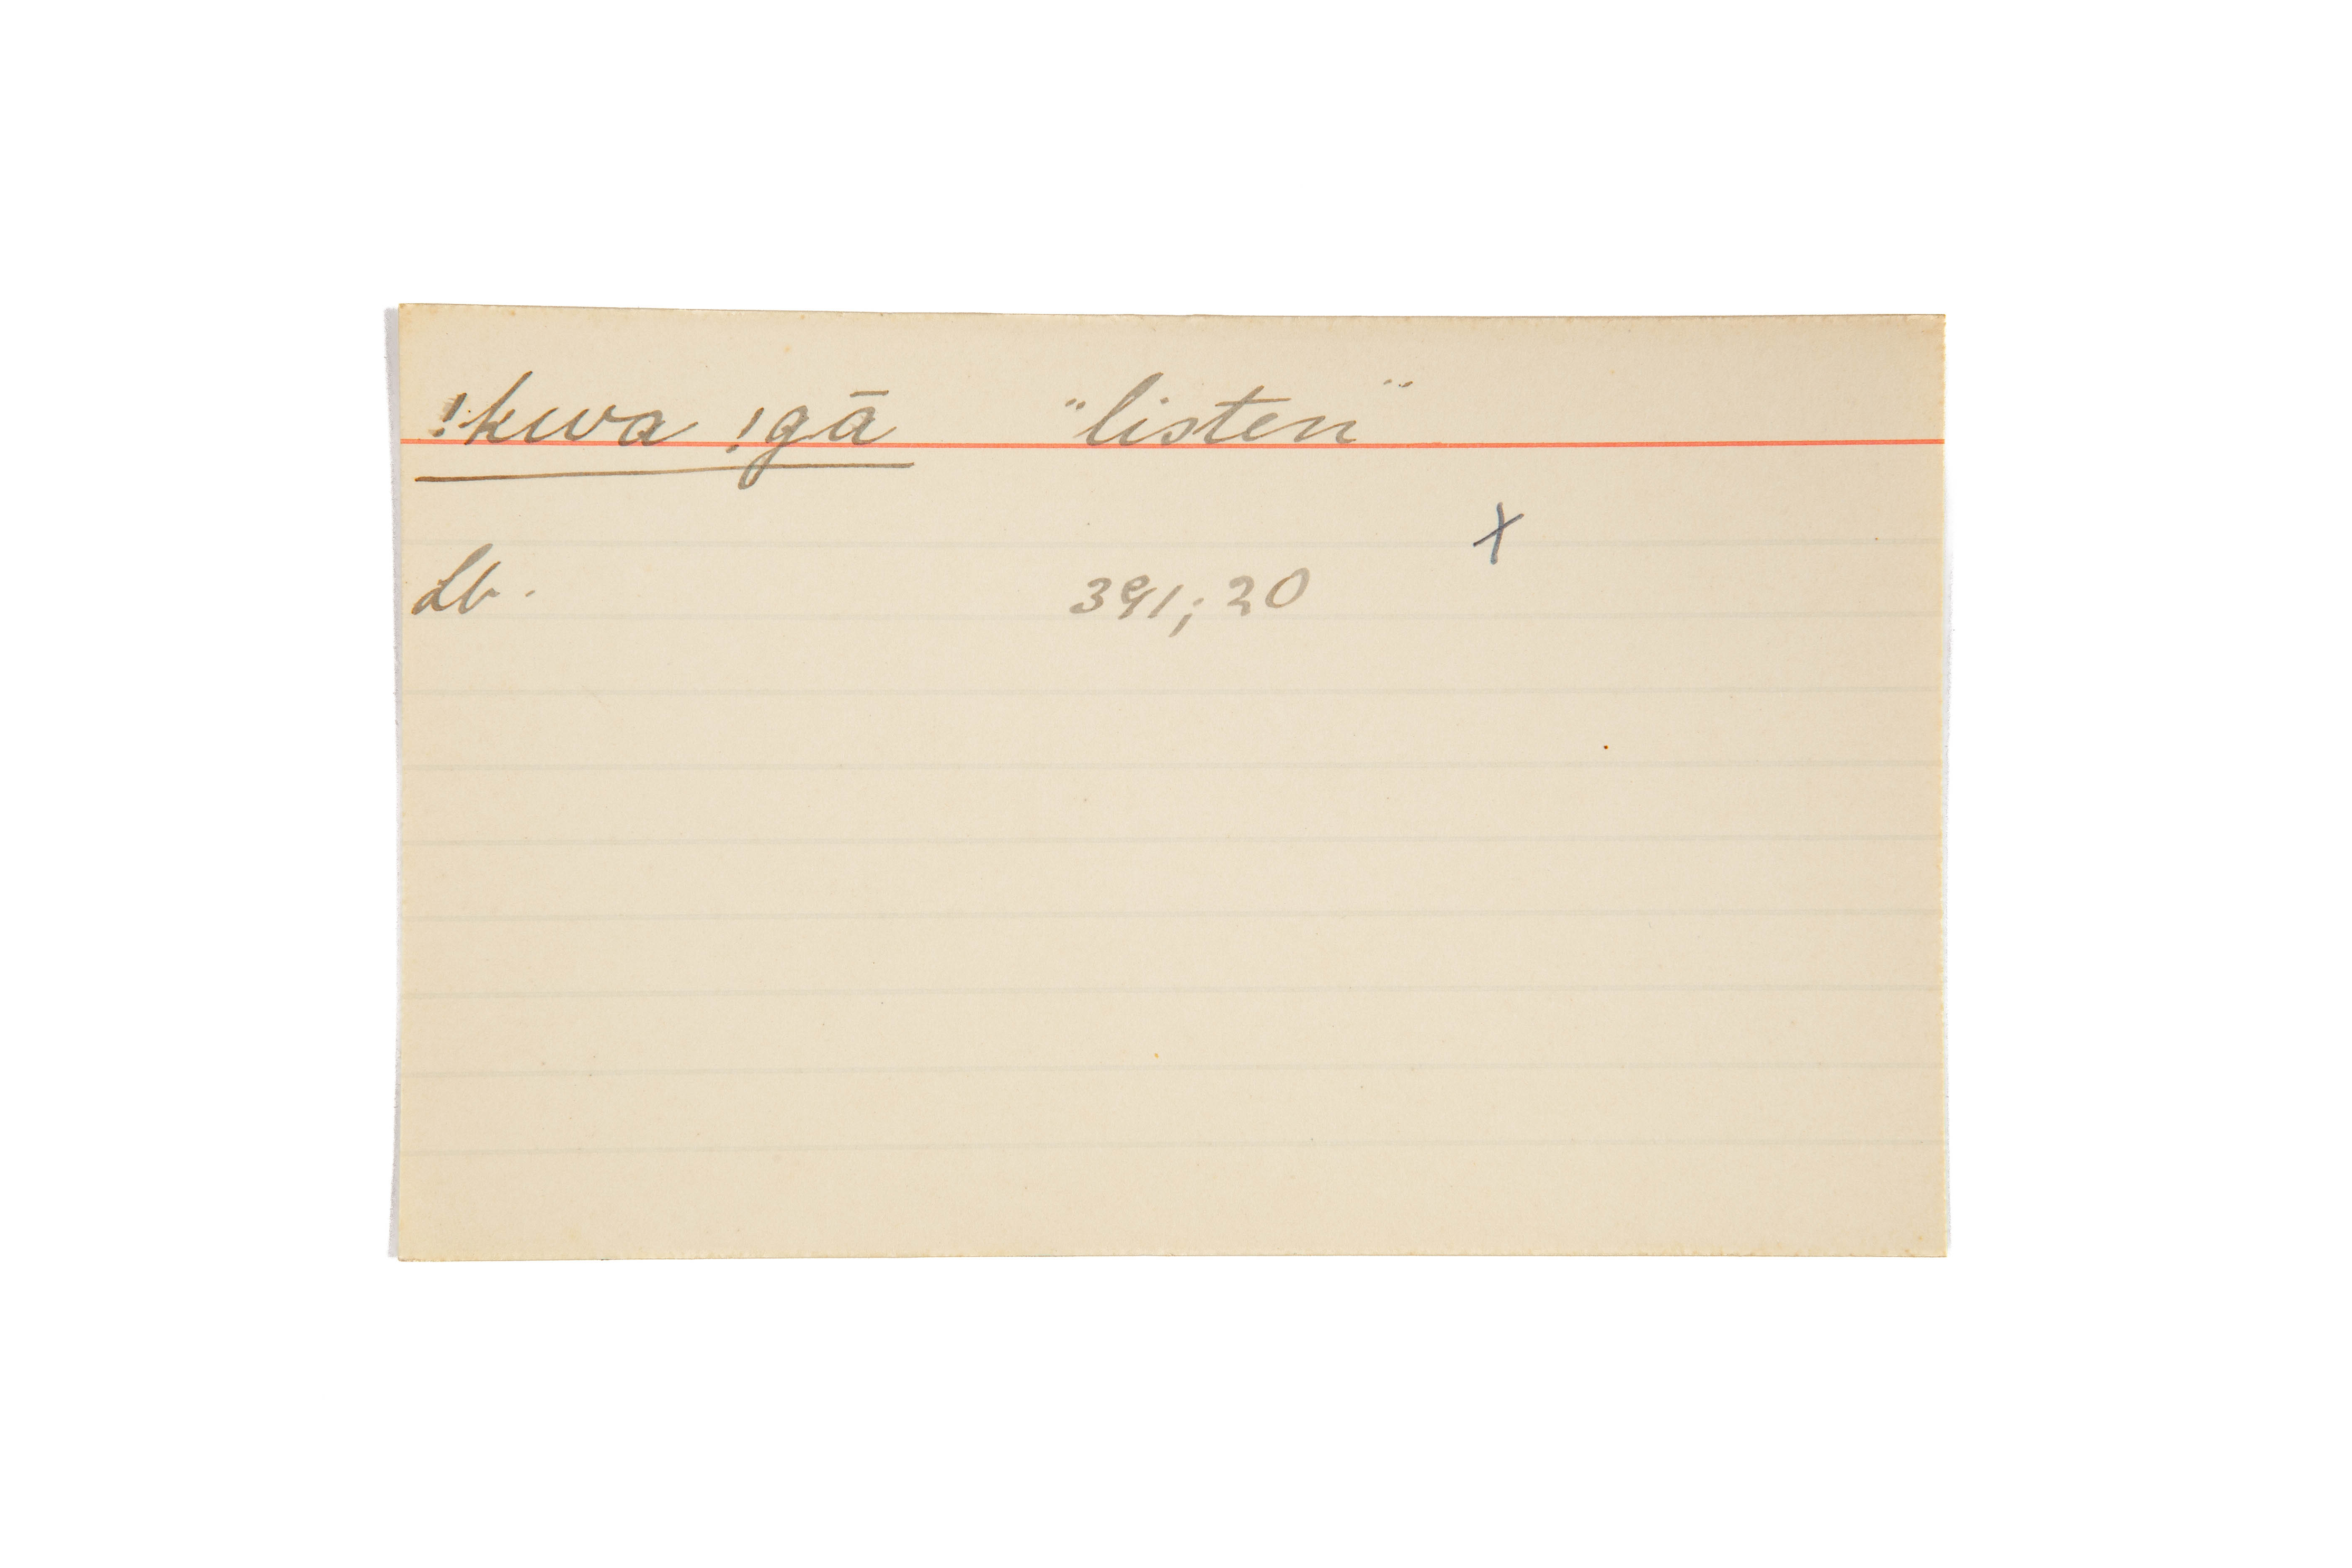 !kwa !gā "listen"
X
Lb. 391; 20